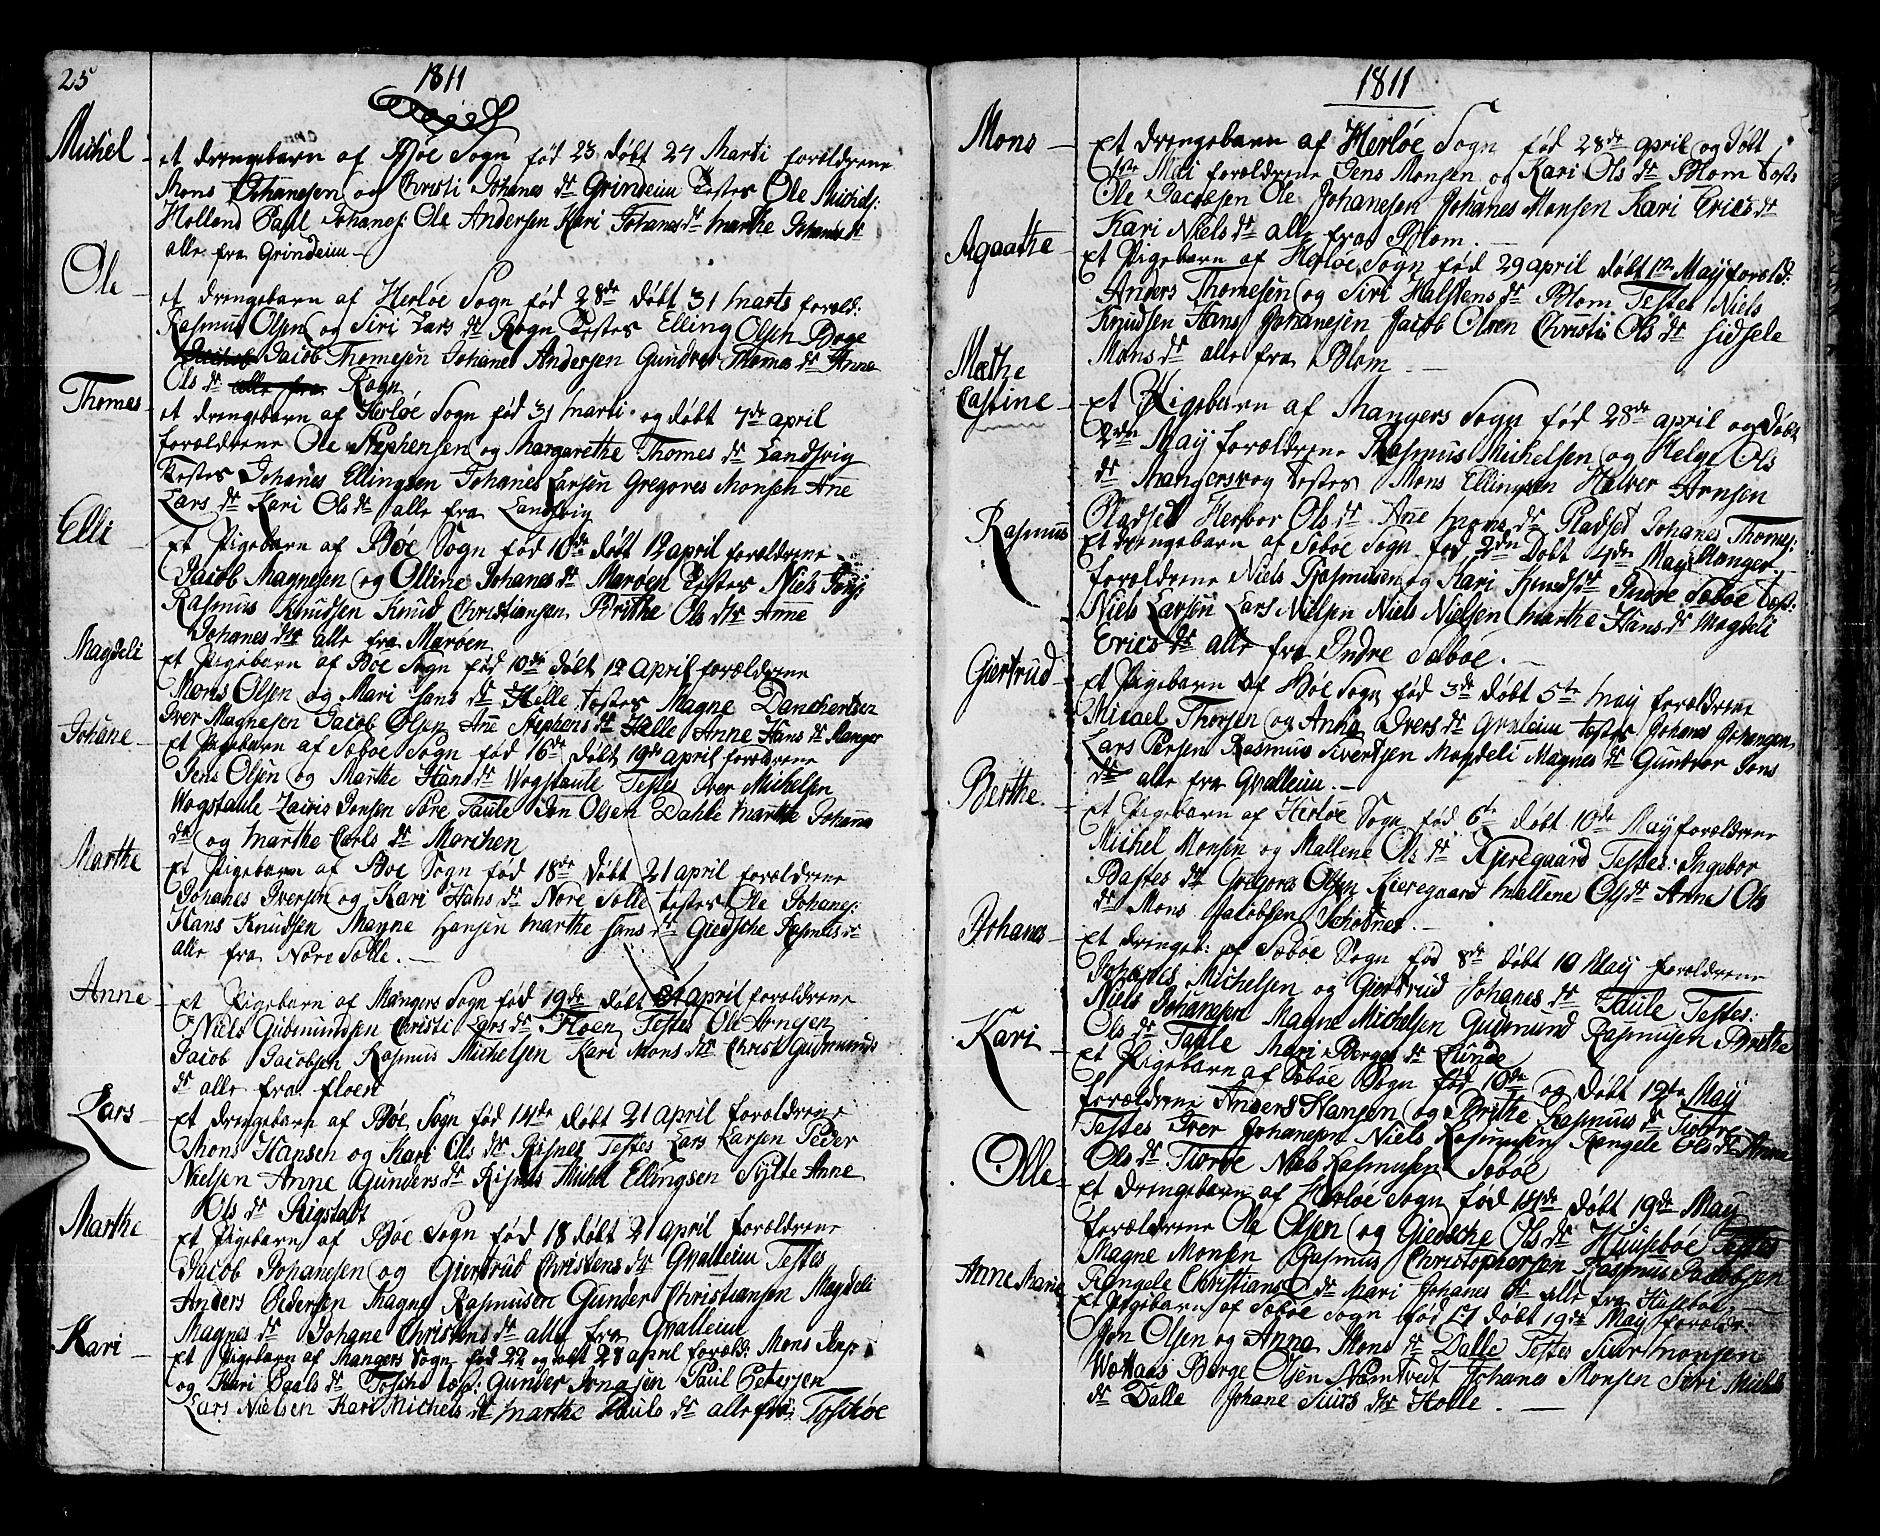 25
1811
Michel
et drengebarn af Bøe Sogn fød 23 døbt 24 Marti forældrene
Mons Johanesen og Christi Johanes dr Grindeim Testes Ole Michels:
Holland Paul Johanes: Ole Andersen Kari Johanes dr Marthe Johanes dr
alle fra Grindeim
Ole
et drengebarn af Herløe Sogn fød 28de døbt 31 Marts foræld:
Rasmus Olsen og Siri Lars dr Rogn Testes Elling Olsen Boge
Jacob Thomesen Johanes Andersen Gundvor Thomas dr Anne
Ols dr alle fra Rogn
Thomes
et drengebarn af Herløe Sogn fød 31 Marti og døbt 7de april
forældrene Ole Stephensen og Margarethe Thomes dr Landsvig
Testes Johanes Ellingsen Johanes Larsen Gregores Monsen Ane
Lars dr Kari Ols dr alle fra Landsvig
Elli
Et Pigebarn af Bøe Sogn fød 10de døbt 12 april forældrene
Jacob Magnesen og Olline Johanes dr Marøen Testes Niels
Rasmus Knudsen Knud Christiansen Brithe Ols dr Anne
Johanes dr alle fra Marøen
Magdeli
Et Pigebarn af Bøe Sogn fød 10de døbt 12 april forældrene
Mons Olsen og Mari Hans dr Helle testes Magne Danchertsen
Iver Magnesen Jacob Olsen Ane Stephens dr Helle Anne Hans dr Manger
Johane
Et Pigebarn af Sæbøe Sogn fød 16de døbt 19de april forældrene
Jens Olsen og Marthe Hans dr Wogstaule Testes Iver Michelsen
Wogstaule Zairis Jensen Søre Taule Jon Olsen Dahle Marthe Johanes
dr og Marthe Carls dr Marchen
Marthe
Et Pigebarn af Bøe Sogn fød 18de døbt 21 april forældrene
Johanes Iversen og Kari Hans dr Nore Solle testes Ole Johanes:
Hans Knudsen Magne Hansen Marthe Hans dr Giedsche Rasmus dr
alle fra Nore Solle.
Anne
Et Pigebarn af Mangers Sogn fød 19de døbt 21 april forældrene
Niels Gudmundsen Christi Lars dr Floen Testes Ole Arnesen
Jacob Jacobsen Rasmus Michelsen Kari Mons dr Christi Gudmunds
dr alle fra floen
Lars
Et drengebarn af Bøe Sogn fød 14de døbt 21 april forældrene
Mons Hansen og Kari Ols dr Risnes Testes Lars Larsen Peder
Nielsen Anne Gunders dr Risnes Michel Ellingsen Sylte Anne
Ols dr Rigstadt
Marthe
Et Pigebarn af Bøe Sogn fød 18 døbt 21 april forældrene
Jacob Johanesen og Giertrud Christens dr Qvalleim Testes
Anders Pedersen Magne Rasmusen Gunder Christiansen Magdeli
Magnes dr Johane Christens dr alle fra Qvalleim
Kari
Et Pigebarn af Mangers Sogn fød 22 og døbt 28 april foræld: Mons
og Kari Paals dr Toske test: Gunder Paul Petersen
Lars Nielsen Kari Michels dr Marthe Pauls dr alle fra Toskøe
1811
Mons
Et drengebarn af Herløe Sogn fød 28de april og døbt
1ste Mai forældrene Jens Monsen og Kari Ols dr Blom test:
Ole Jacobsen Ole Johanesen Johanes Monsen Kari Erics dr
Kari Niels dr alle fra Blom.
Agaathe
Et Pigebarn af Herløe Sogn fød 29 april døbt 1ste May foræld:
Anders Thomesen og Siri Halstens dr Blom Testes Niels
Knudsen Hans Johanesen Jacob Olsen Christi Ols dr Sidsele
Mons dr alle fra Blom
Mæthe
Castine
Et Pigebarn af Mangers Sogn fød 28de april og døbt
2den May forældrene Rasmus Michelsen og Helge Ols
dr Mangersvog Testes Mons Ellingsen Halver Arnsen
Pladset Herbor Ols dr Ane Mons dr Pladset Johanes Thomes:
Manger.
Rasmus
Et drengebarn af Sæbøe Sogn fød 2den Døbt 4de May
forældrene Niels Rasmusen og Kari Knuds dr Indre Sæbøe test:
Niels Larsen Lars Nielsen Niels Nielsen Marthe Hans dr Magdeli
Erics dr alle fra Indre Sæbøe.
Giertrud
Et Pigebarn af Bøe Sogn fød 3de døbt 5te May forældrene
Micael Thorsen og Anna Ivers dr Qvaleim testes Johanes Johanesen
Lars Persen Rasmus Sivertsen Magdeli Magnes dr Gundvor Jens
dr alle fra Qvalleim.
Berthe.
Et Pigebarn af Herløe Sogn fød 6te døbt 10de May forældrene
Michel Monsen og Mallene Ols dr Kjeregaard Testes: Ingebor
Bastes dr Gregores Olsen Kieregaard Mallene Ols dr Anne Ols
dr Mons Jacobsen Schodnes.
Johanes
Et drengeb: af Sæbøe Sogn fød 8de døbt 10 May forældrene
Johanes Michelsen og Giertrud Johanes dr Taule Testes:
Niels Johanesen Magne Michelsen Gudmund Rasmusen Brithe
Ols dr Taule Mari Berges dr Sunde
Kari
Et Pigebarn af Sæbøe Sogn fød 10de og døbt 12te May
forældrene Anders Hansen og Brithe Rasmus dr Tiøre
Testes Iver Johanesen Niels Rasmusen Rangele Ols dr Anna
Ols dr Tiørøe Niels Rasmusen Sæbøe
Olle
Et drengebarn af Herløe Sogn fød 14de døbt 19de May
forældrene Ole Olsen og Giedsche Ols dr Huusebøe Testes
Magne Monsen Rasmus Christophersen Rasmus Jacobsen
Rangele Christians dr Mari Johanes dr alle fra Husebøe
Anne Marie
Et Pigebarn af Sæbøe Sogn fød 17 døbt 19de May forældr:
Jon Olsen og Anna Mons dr Dalle Testes Siur Monsen
Wottaas Berge Olsen Namtvedt Johanes Monsen Siri Michels
dr Dalle Johane Siurs dr Holle.